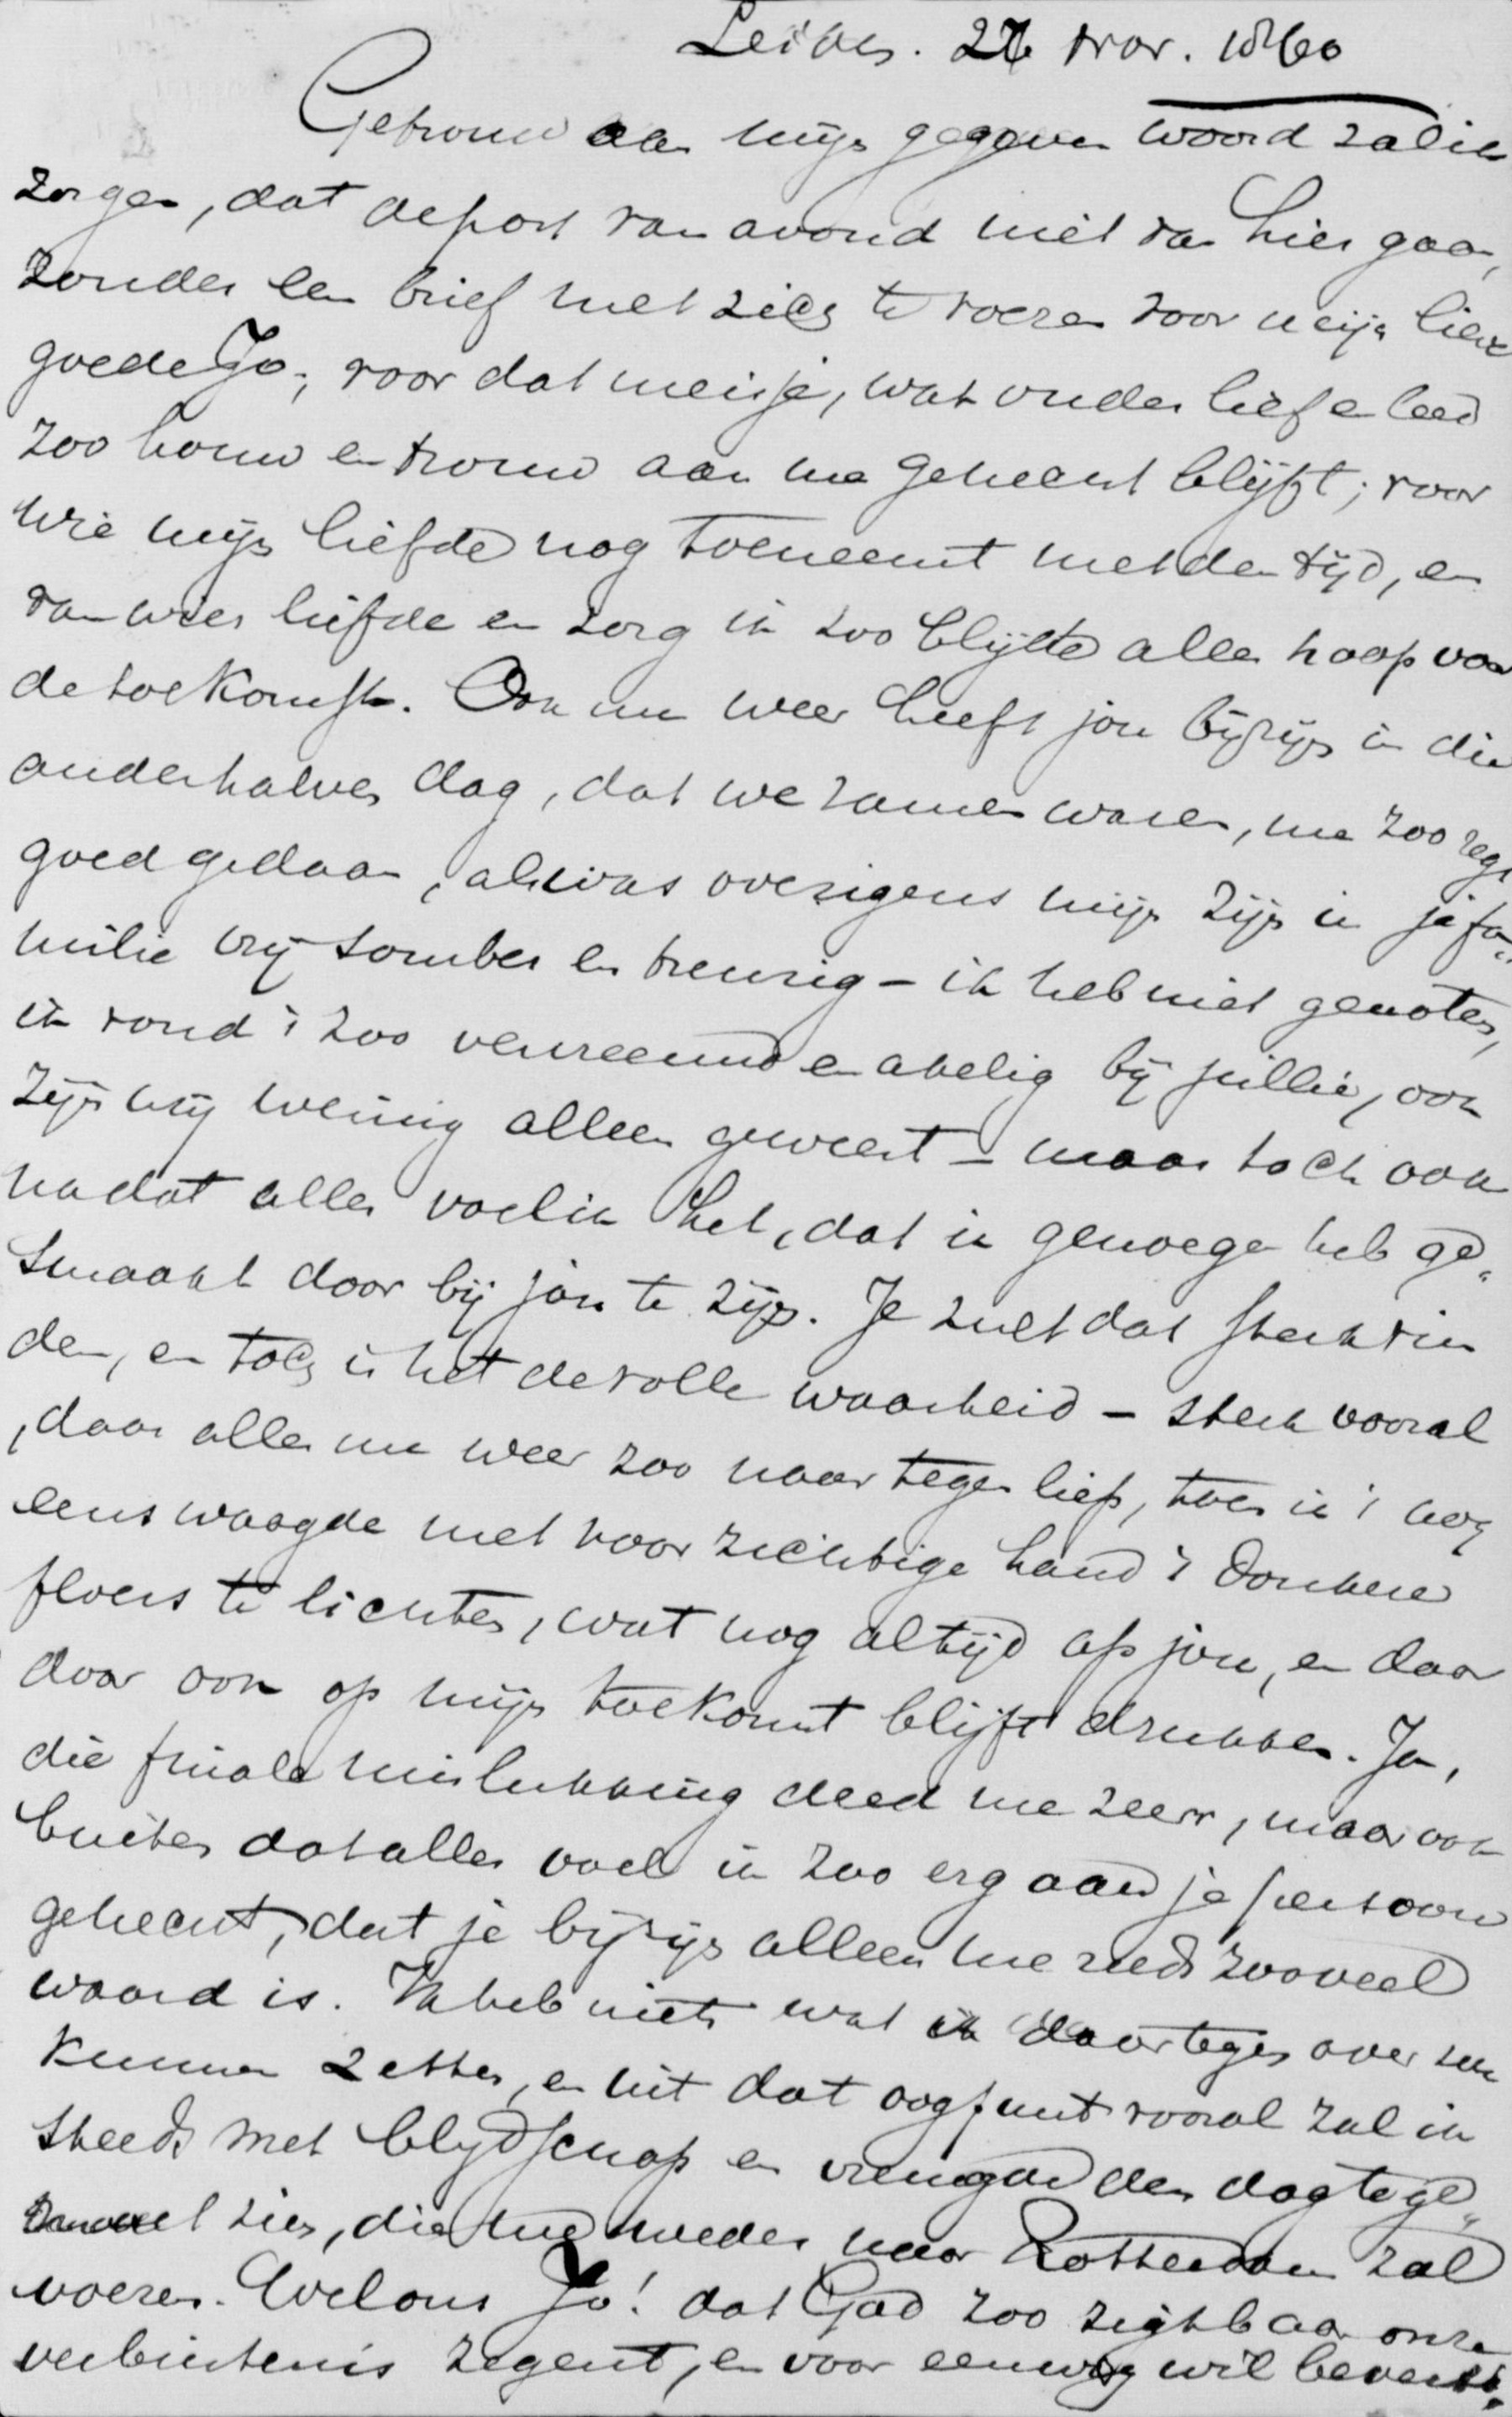 Leiden. 26 Nov. 1860
Getrouw aan mijn gegeven woord zal ik
zorgen, dat de post van avond niet van hier gaan,
zonder een brief met zich te voeren voor mijn lieve
goede Jo; voor dat meisje, wat onder lief en leed
zoo houw en trouw aan me gehecht blijft; voor
wie mijn liefde nog toeneemt met den tijd, en
van wier liefde en zorg ik zoo blijde alles hoop voor
de toekomst. Ook nu weer heeft jou bijzijn in die
anderhalven dag, dat we zamen waren, me zoo regt
goed gedaan, al was overigens mijn zijn in je fa„
milie vrij somber en treurig – ik heb niet genoten,
ik vond 't zoo vervreemd en akelig bij jullie, ook
zijn wij weinig alleen geweest – maar toch ook
na dat alles voel ik het, dat ik genoegen heb ge„
smaakt door bij jou te zijn. Je zult dat sterk vin
den, en toch is het de volle waarheid – sterk vooral
, daar alles me weer zoo naar tegen liep, toen ik 't nog
eens waagde met voorzichtige hand 't donkere
floers te lichten, wat nog altijd op jou, en daar
door ook op mijn toekomst blijft drukken. Ja,
die finale mislukking deed me zeer, maar ook
buiten dat alles voel ik zoo erg aan je persoon
gehecht, dat je bijzijn alleen me reeds zooveel
waard is. Ik heb niets wat ik daartegen over zou
kunnen zetten, en uit dat oogpunt vooral zal ik
steeds met blijdschap en vreugde den dag tege„
moet zien, die me weder naar Rotterdam zal
voeren. Welaan Jo! dat God zoo zigtbaar onze
verbintenis zegent, en voor eeuwig wil bevesti„